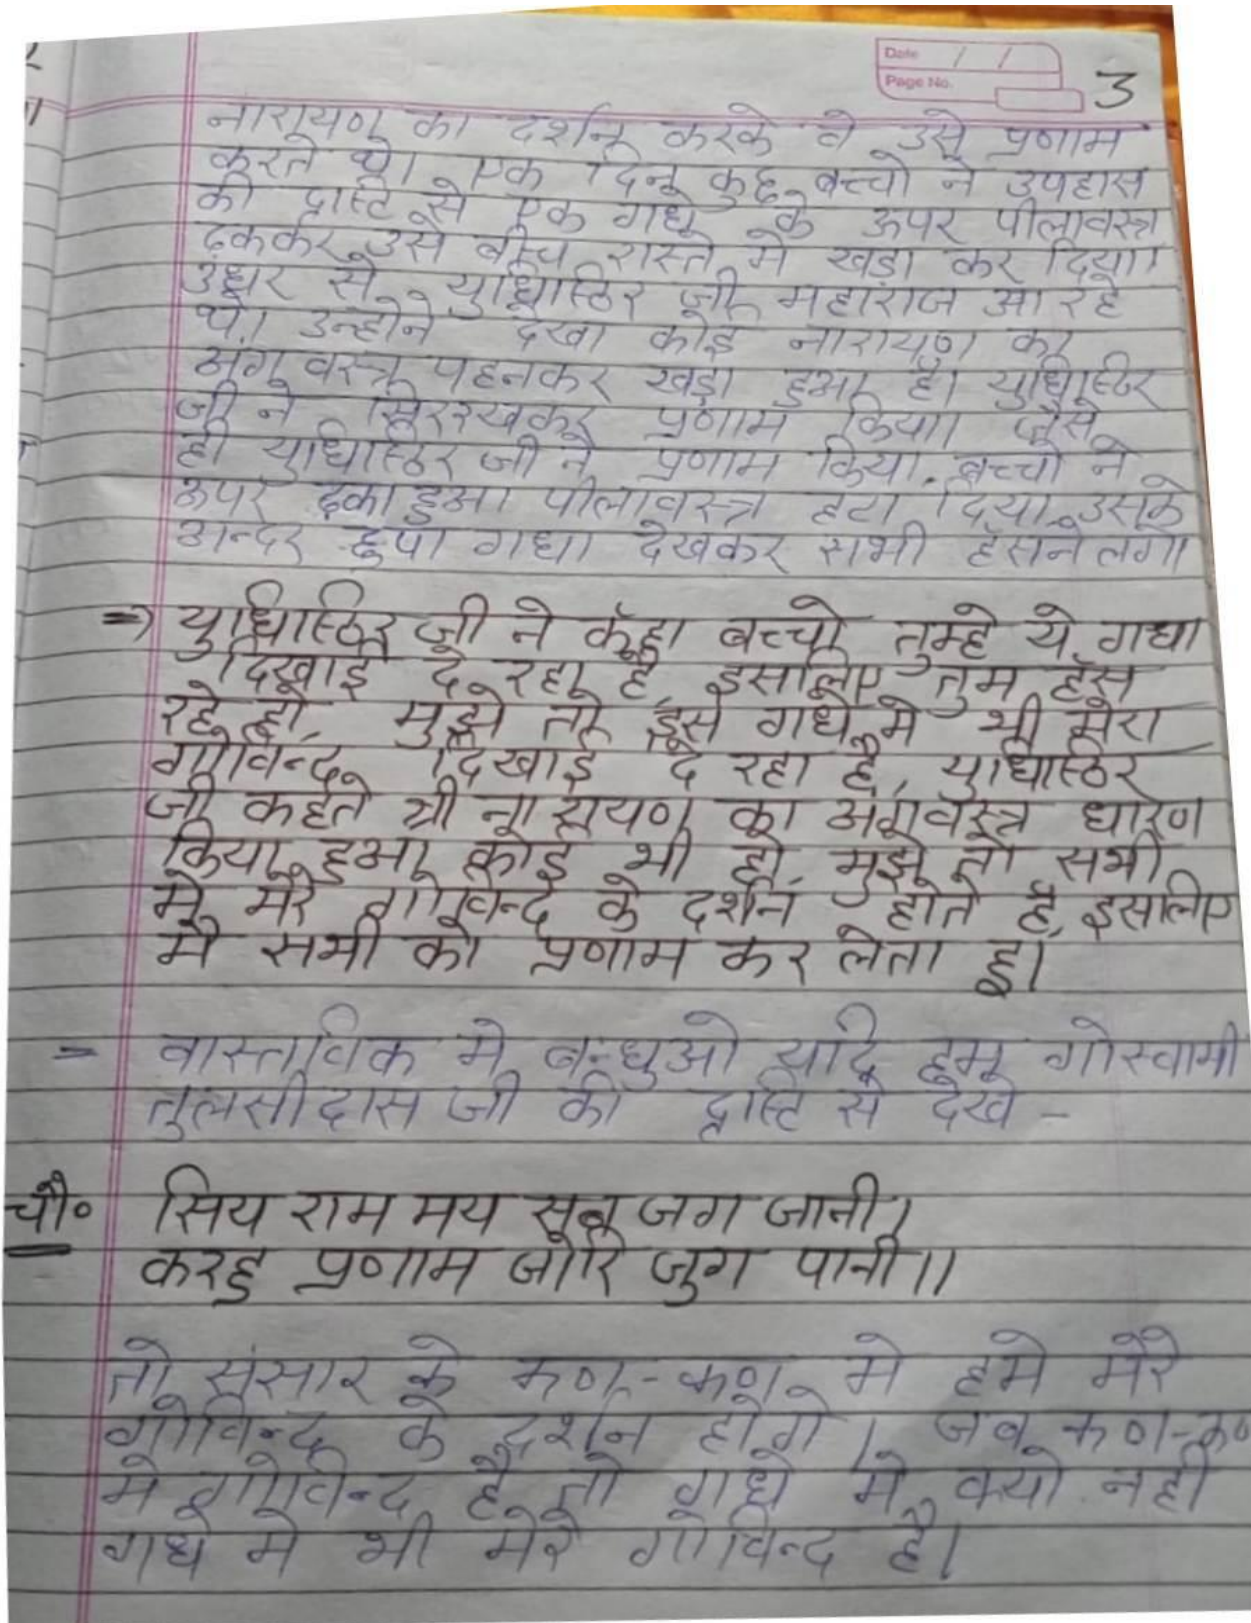 Date / /
Page No.
3
नारायण का दर्शन करके वे उसे प्रणाम
करते थे। एक दिन कुछ बच्चो ने उपहास
की द्रष्टि से एक गधे के ऊपर पीलावस्त्र
ढककर उसे बीच रास्ते मे खडा कर दिया।
उधर से युधिष्ठिर जी महाराज आ रहे
थे। उन्होने देखा कोई नारायण का
अंग वस्त्र पहनकर खडा हुआ है। युधिष्ठिर
जी ने सिररखकर प्रणाम किया। जैसे
ही युधिष्ठिर जी ने प्रणाम किया, बच्चो ने
ऊपर ढका हुआ पीलावस्त्र हटा दिया, उसके
अन्दर छुपा गधा देखकर सभी हँसने लगे।
=> युधिष्ठिर जी ने कहा बच्चो तुम्हे ये गधा
दिखाई दे रहा है, इसलिए तुम हँस
रहे हो, मुझे तो इस गधे मे भी मेरा
गोविन्द दिखाई दे रहा है, युधिष्ठिर
जी कहते श्री नारायण का अंगवस्त्र धारण
किया हुआ कोई भी हो, मुझे तो सभी
मे मेरे गोविन्द के दर्शन होते है, इसलिए
मै सभी को प्रणाम कर लेता हूं।
= वास्तविक मे बन्धुओ यदि हम गोस्वामी
तुलसीदास जी की द्रष्टि से देखे -
चौ० सिय राम मय सब जग जानी।
करहु प्रणाम जोरि जुग पानी।।
तो संसार के कण-कण मे हमे मेरे
गोविन्द के दर्शन होगे। जब कण-कण
मे गोविन्द है तो गधे मे क्यो नही
गधे मे भी मेरे गोविन्द है।